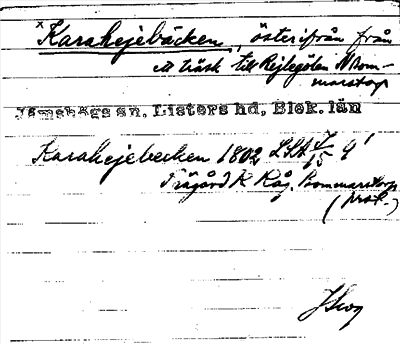 x Karahejebäcken, österifrån från
ett träsk till Rejlegölen N Bom-
marstorp
Jämshögs sn, Listers hd, Blek. län
Karahejebecken 1802 LSA J/15 9¹
Trägård K Råg. Bommarstorp
(prot.)